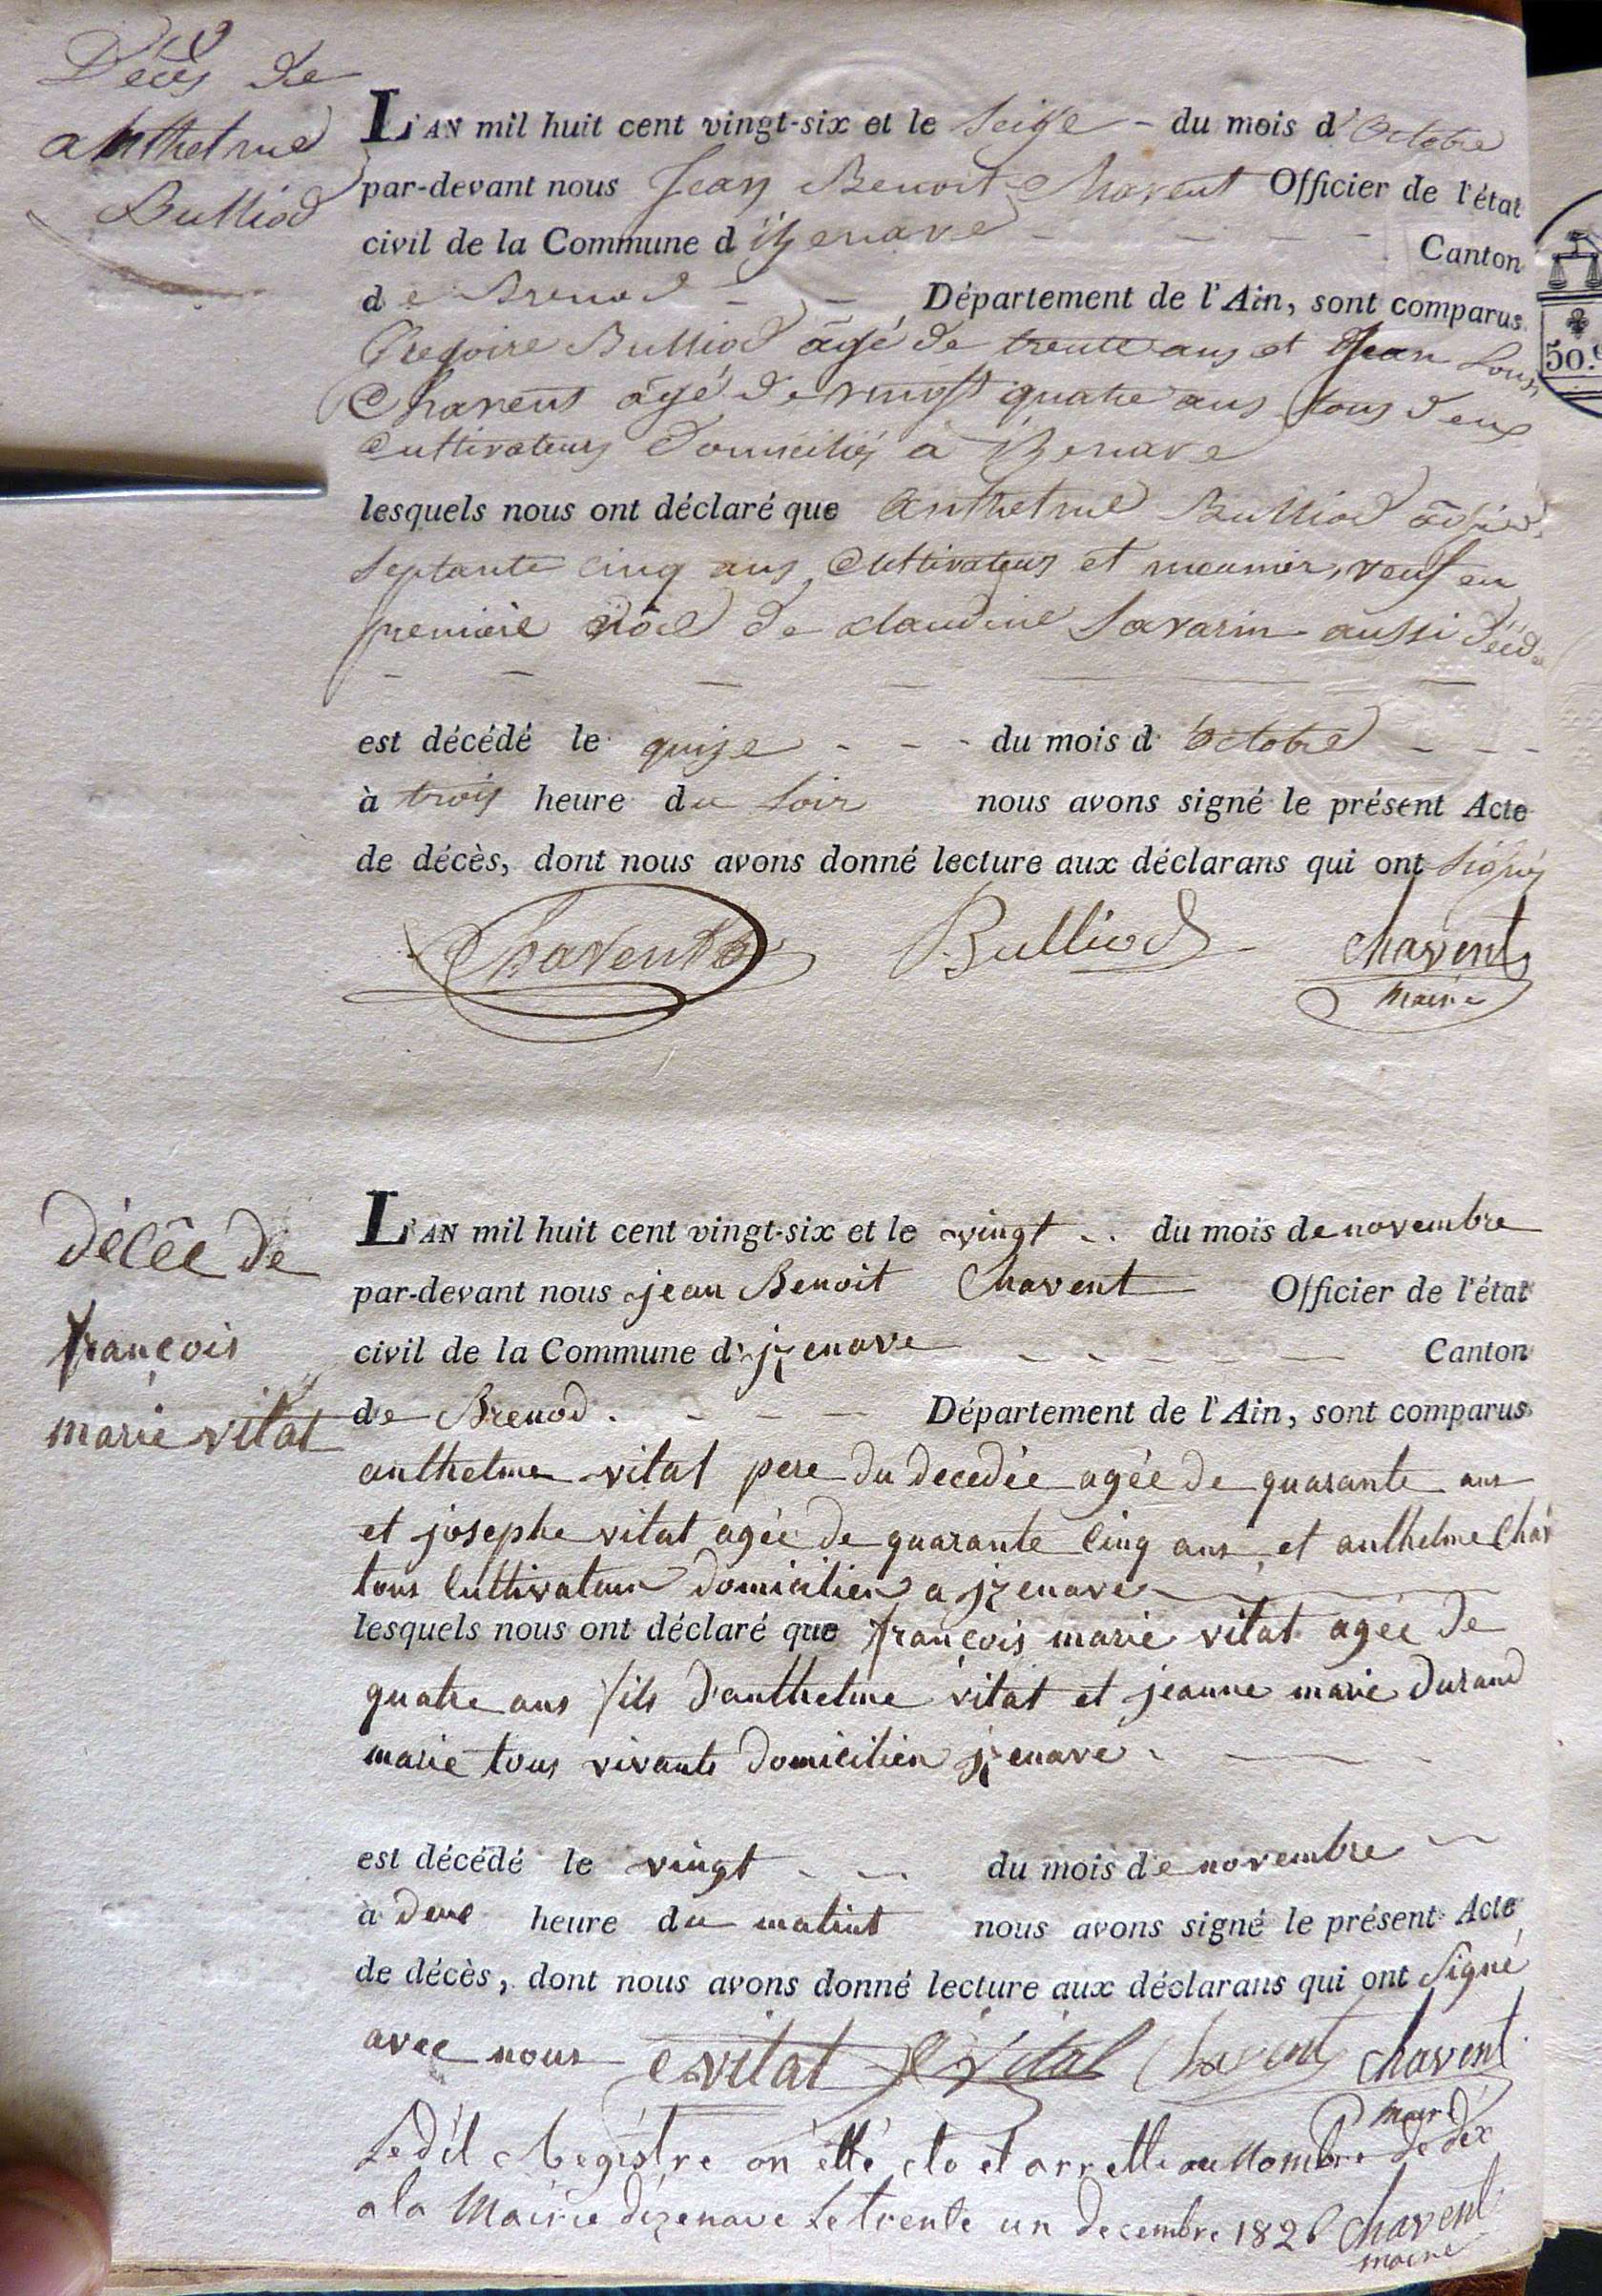 Décès de
anthelme
Bulliod
L'AN mil huit cent vingt-six et le seize - du mois d'Octobre
par-devant nous Jean Benoit Chavent Officier de l'état
civil de la Commune d'izenave Canton
de Brenod Département de l'Ain, sont comparus
Gregoire Bulliod âgé de trente ans et Jean Louis
Chavent âgé de vingt quatre ans tous deux
Cultivateurs domiciliés à izenave
lesquels nous ont déclaré que anthelme Bulliod âgé de
septante cinq ans Cultivateur et meunier, veuf en
première de claudine Savarin aussi
est décédé le quize du mois d'octobre
à trois heure du soir nous avons signé le présent Acte
de décès, dont nous avons donné lecture aux déclarans qui ont signés
Chavent Bulliod chavent
maire
décêe de
françois
marie vitat
L'AN mil huit cent vingt-six et le vingt du mois de novembre
par-devant nous jean Benoit Chavent Officier de l'état
civil de la Commune d'jzenave Canton
de Brenod. Département de l'Ain, sont comparus
anthelme vitat pere du decedée agée de quarante ans
et josephe vitat agée de quarante cinq ans et anthelme Chav
tous cultivateur domicilien a jzenave
lesquels nous ont déclaré que françois marie vitat agée de
quatre ans fils d'anthelme vitat et jeanne marie durand
marie tous vivants domicilien jzenave.
est décédé le vingt du mois de novembre
à deux heure du matint nous avons signé le présent Acte
de décès, dont nous avons donné lecture aux déclarans qui ont signé
avec nous vitat vital Chavent chavent
maire
Le dit Regístre on etté clo et arretté au Nombre de dix
a la Mairie dizenave Le trente un decembre 1826 chavent
maire
50.c